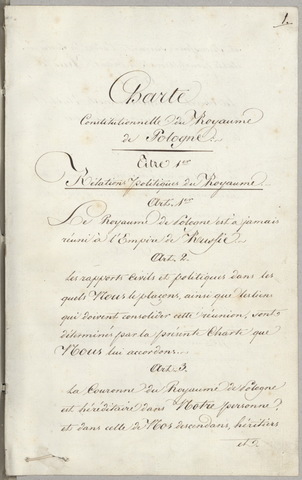 1.
Charte
Constitutionnelle du Royaume
de Pologne.
Titre 1er
Rélations politiques du Royaume.
Art. 1er
Le Royaume de Pologne est à jamais
réuni à l'Empire de Russie
Art. 2.
Les rapports Civils et politiques dans les
quels Nous le plaçons, ainsi que les liens
qui doivent consolider cette réunion, sont
déterminés par la présente Charte que
Nous lui accordons.
Art. 3.
La Couronne du Royaume de Pologne
est héréditaire dans Notre personne,
et dans celle de Nos descendans, héritiers
et